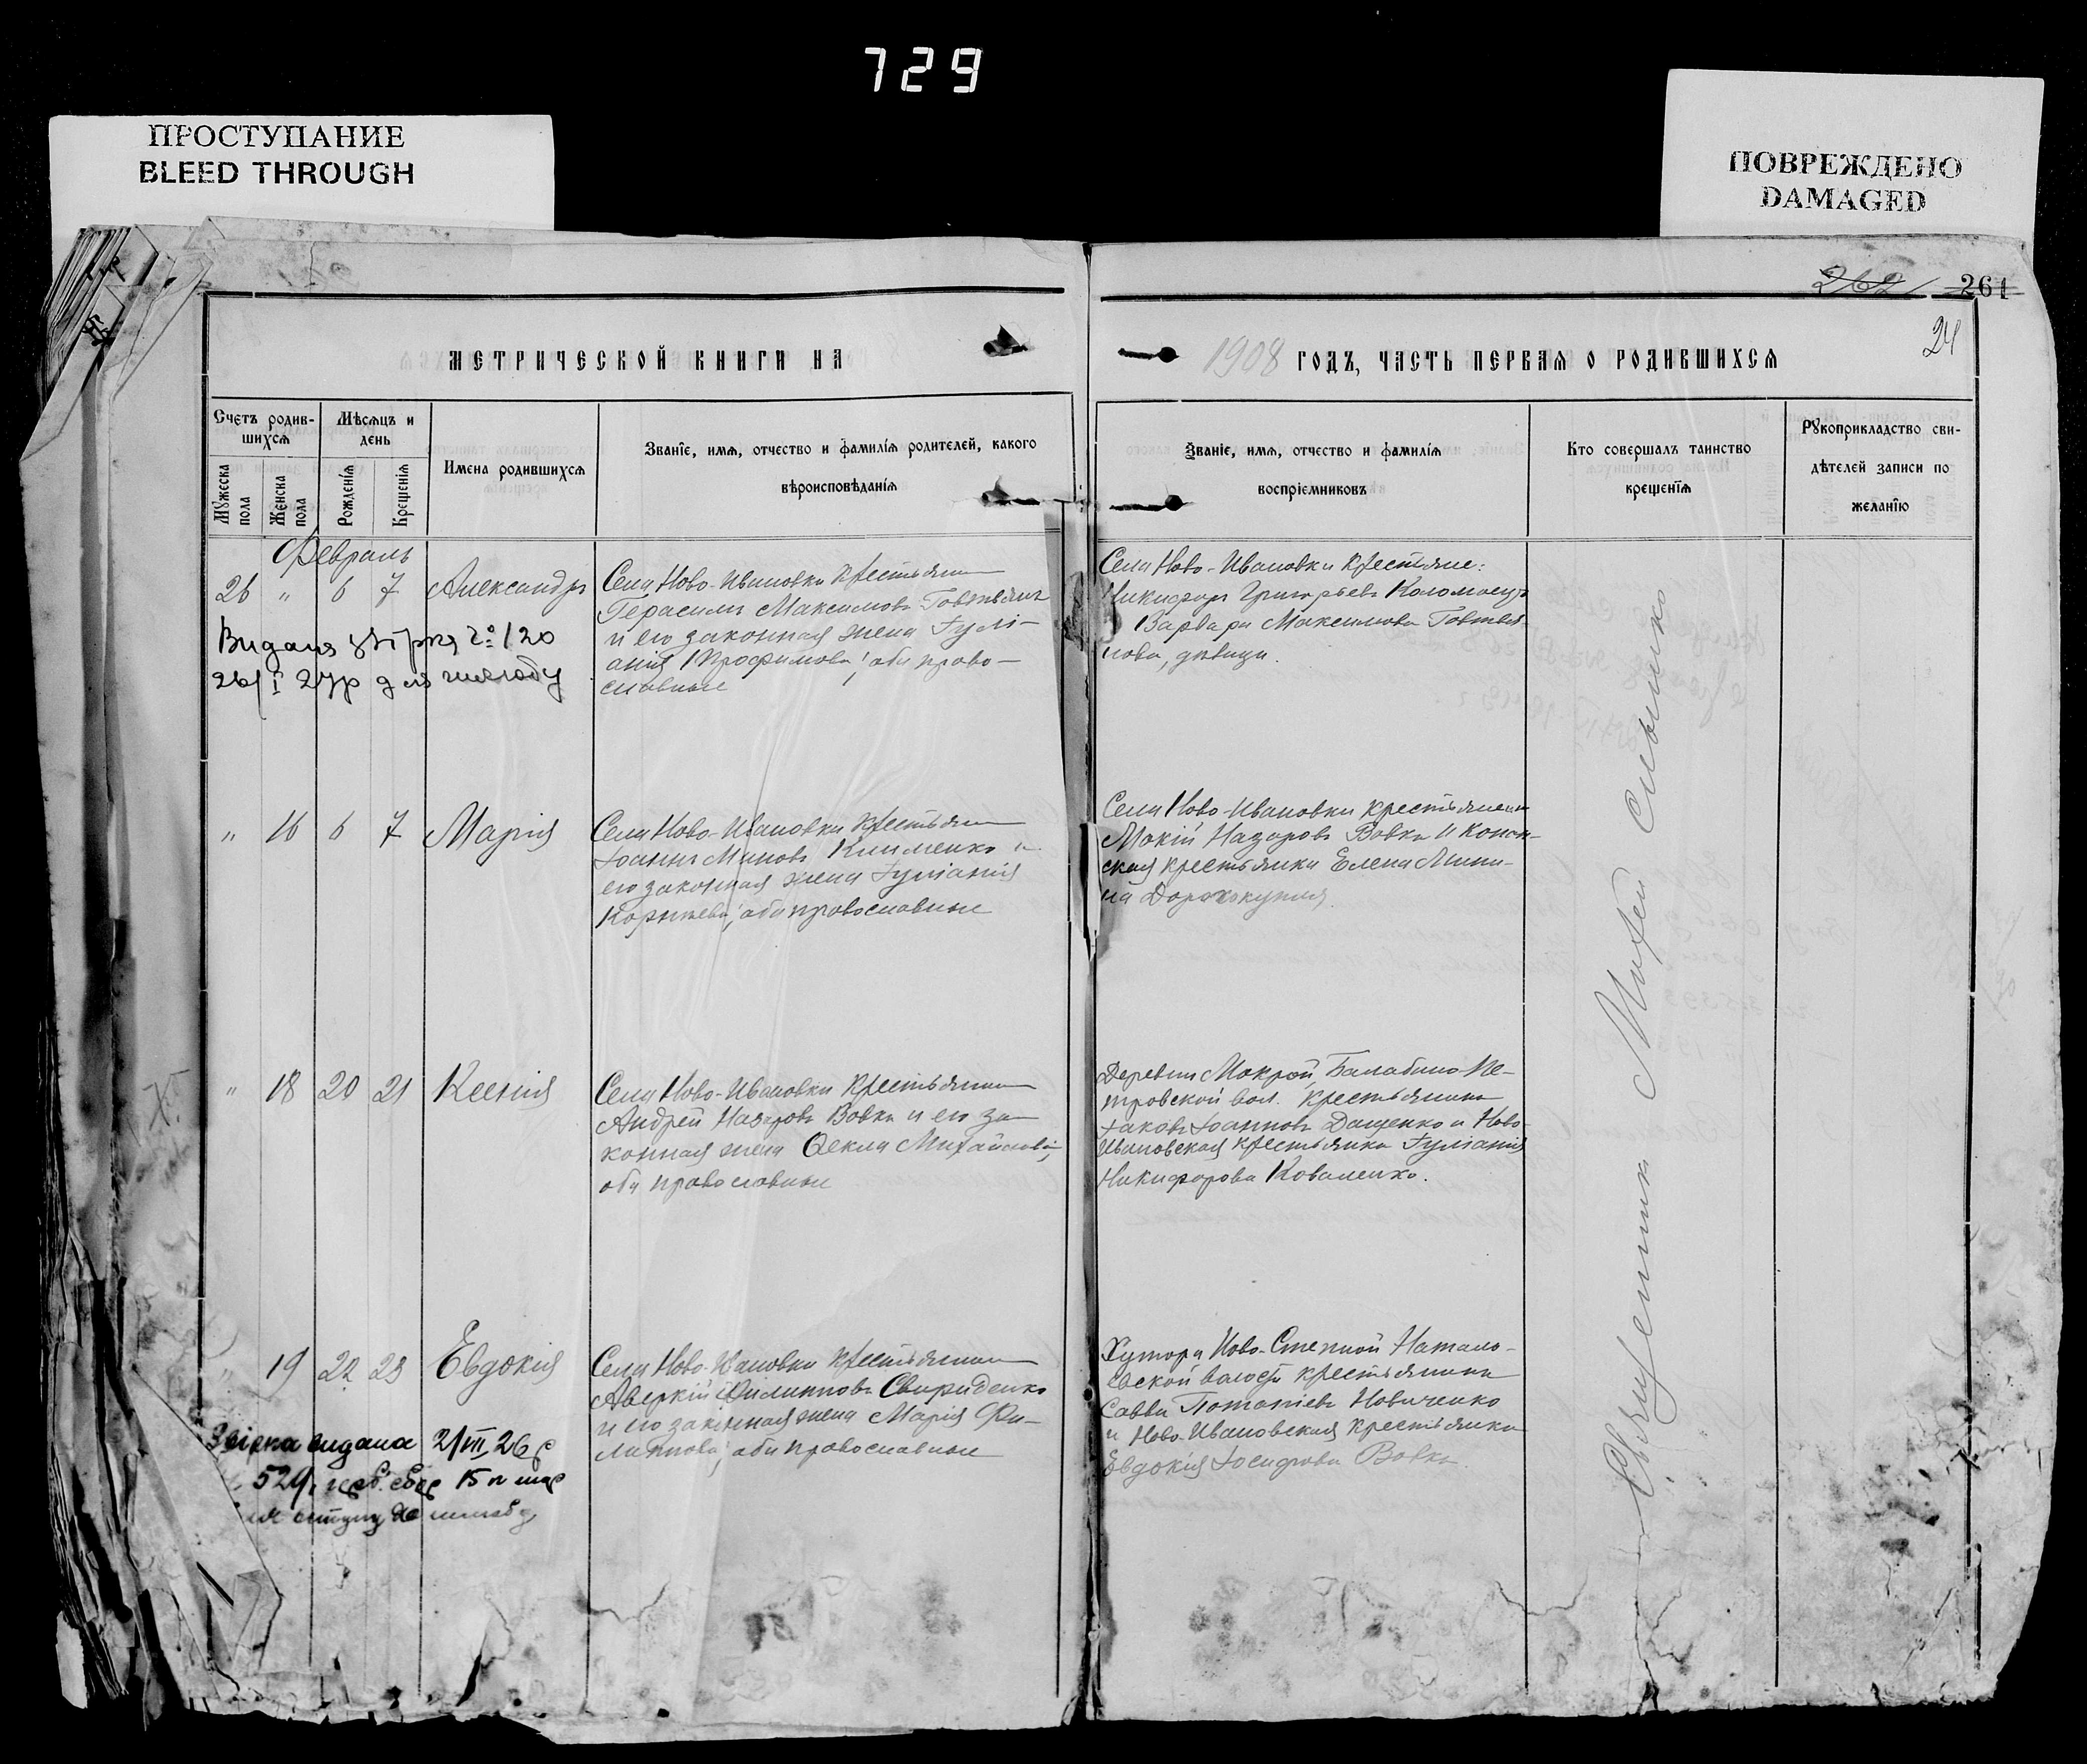 729
ПРОСТУПАНИЕ
BLEED THROUGH
ПОВРЕЖДЕНО
DAMAGED
262 261
24
МЕТРИЧЕСКОЙ КНИГИ НА 1908 ГОДЪ, ЧАСТЬ ПЕРВАЯ О РОДИВШИХСЯ
Счетъ родив-
шихся
Мѣсяцъ и
день
Мужеска
пола
Женска
пола
Рожденія
Крещенія
Имена родившихся
Званіе, имя, отчество и фамилія родителей, какого
вѣроисповѣданія
Званіе, имя, отчество и фамилія
воспріемниковъ
Кто совершалъ таинство
крещенія
Рукоприкладство сви-
дѣтелей записи по
желанію
Февраль
26 " 6 7 Александръ
Села Ново-Ивановки крестьянинъ
Герасимъ Максимовъ
и его законная жена Іулі-
анія Трофимова, оба право-
славные
Села Ново-Ивановки крестьяне:
Никифоръ Григорьевъ Коломоецъ
Варвара Максимова
нова, дѣвица.
Видана 120
26/I 27р для шлюбу
" 16 6 7 Марія
Села Ново-Ивановки крестьянинъ
Іоаннъ Миновъ Клименко и
его законная жена Іуліанія
Корнѣева, оба православные
Села Ново-Ивановки крестьянинъ
Мокій Назаровъ Вовкъ и Конон-
ская крестьянка Елена Мини-
на
" 18 20 21 Ксенія
Села Ново-Ивановки крестьянинъ
Андрей Назаровъ Вовкъ и его за-
конная жена Ѳекла Михайлова,
оба православные
Деревни Мокрой Балабино Пе-
тровской вол. крестьянинъ
Іаковъ Іоанновъ Дащенко и Ново-
Ивановская крестьянка Іуліанія
Никифорова Коваленко.
" 19 22 23 Евдокія
Села Ново-Ивановки крестьянинъ
Аверкій Филипповъ Свириденко
и его законная жена Марія Фи-
липпова, оба православные
Хутора Ново-Степной Натало-
евской волости крестьянинъ
Савва Потапіевъ Новиченко
и Ново-Ивановская крестьянка
Евдокія Іосифова Вовкъ.
видана 2/VII 26 р
529, 15 к
Священникъ Михей Слынько